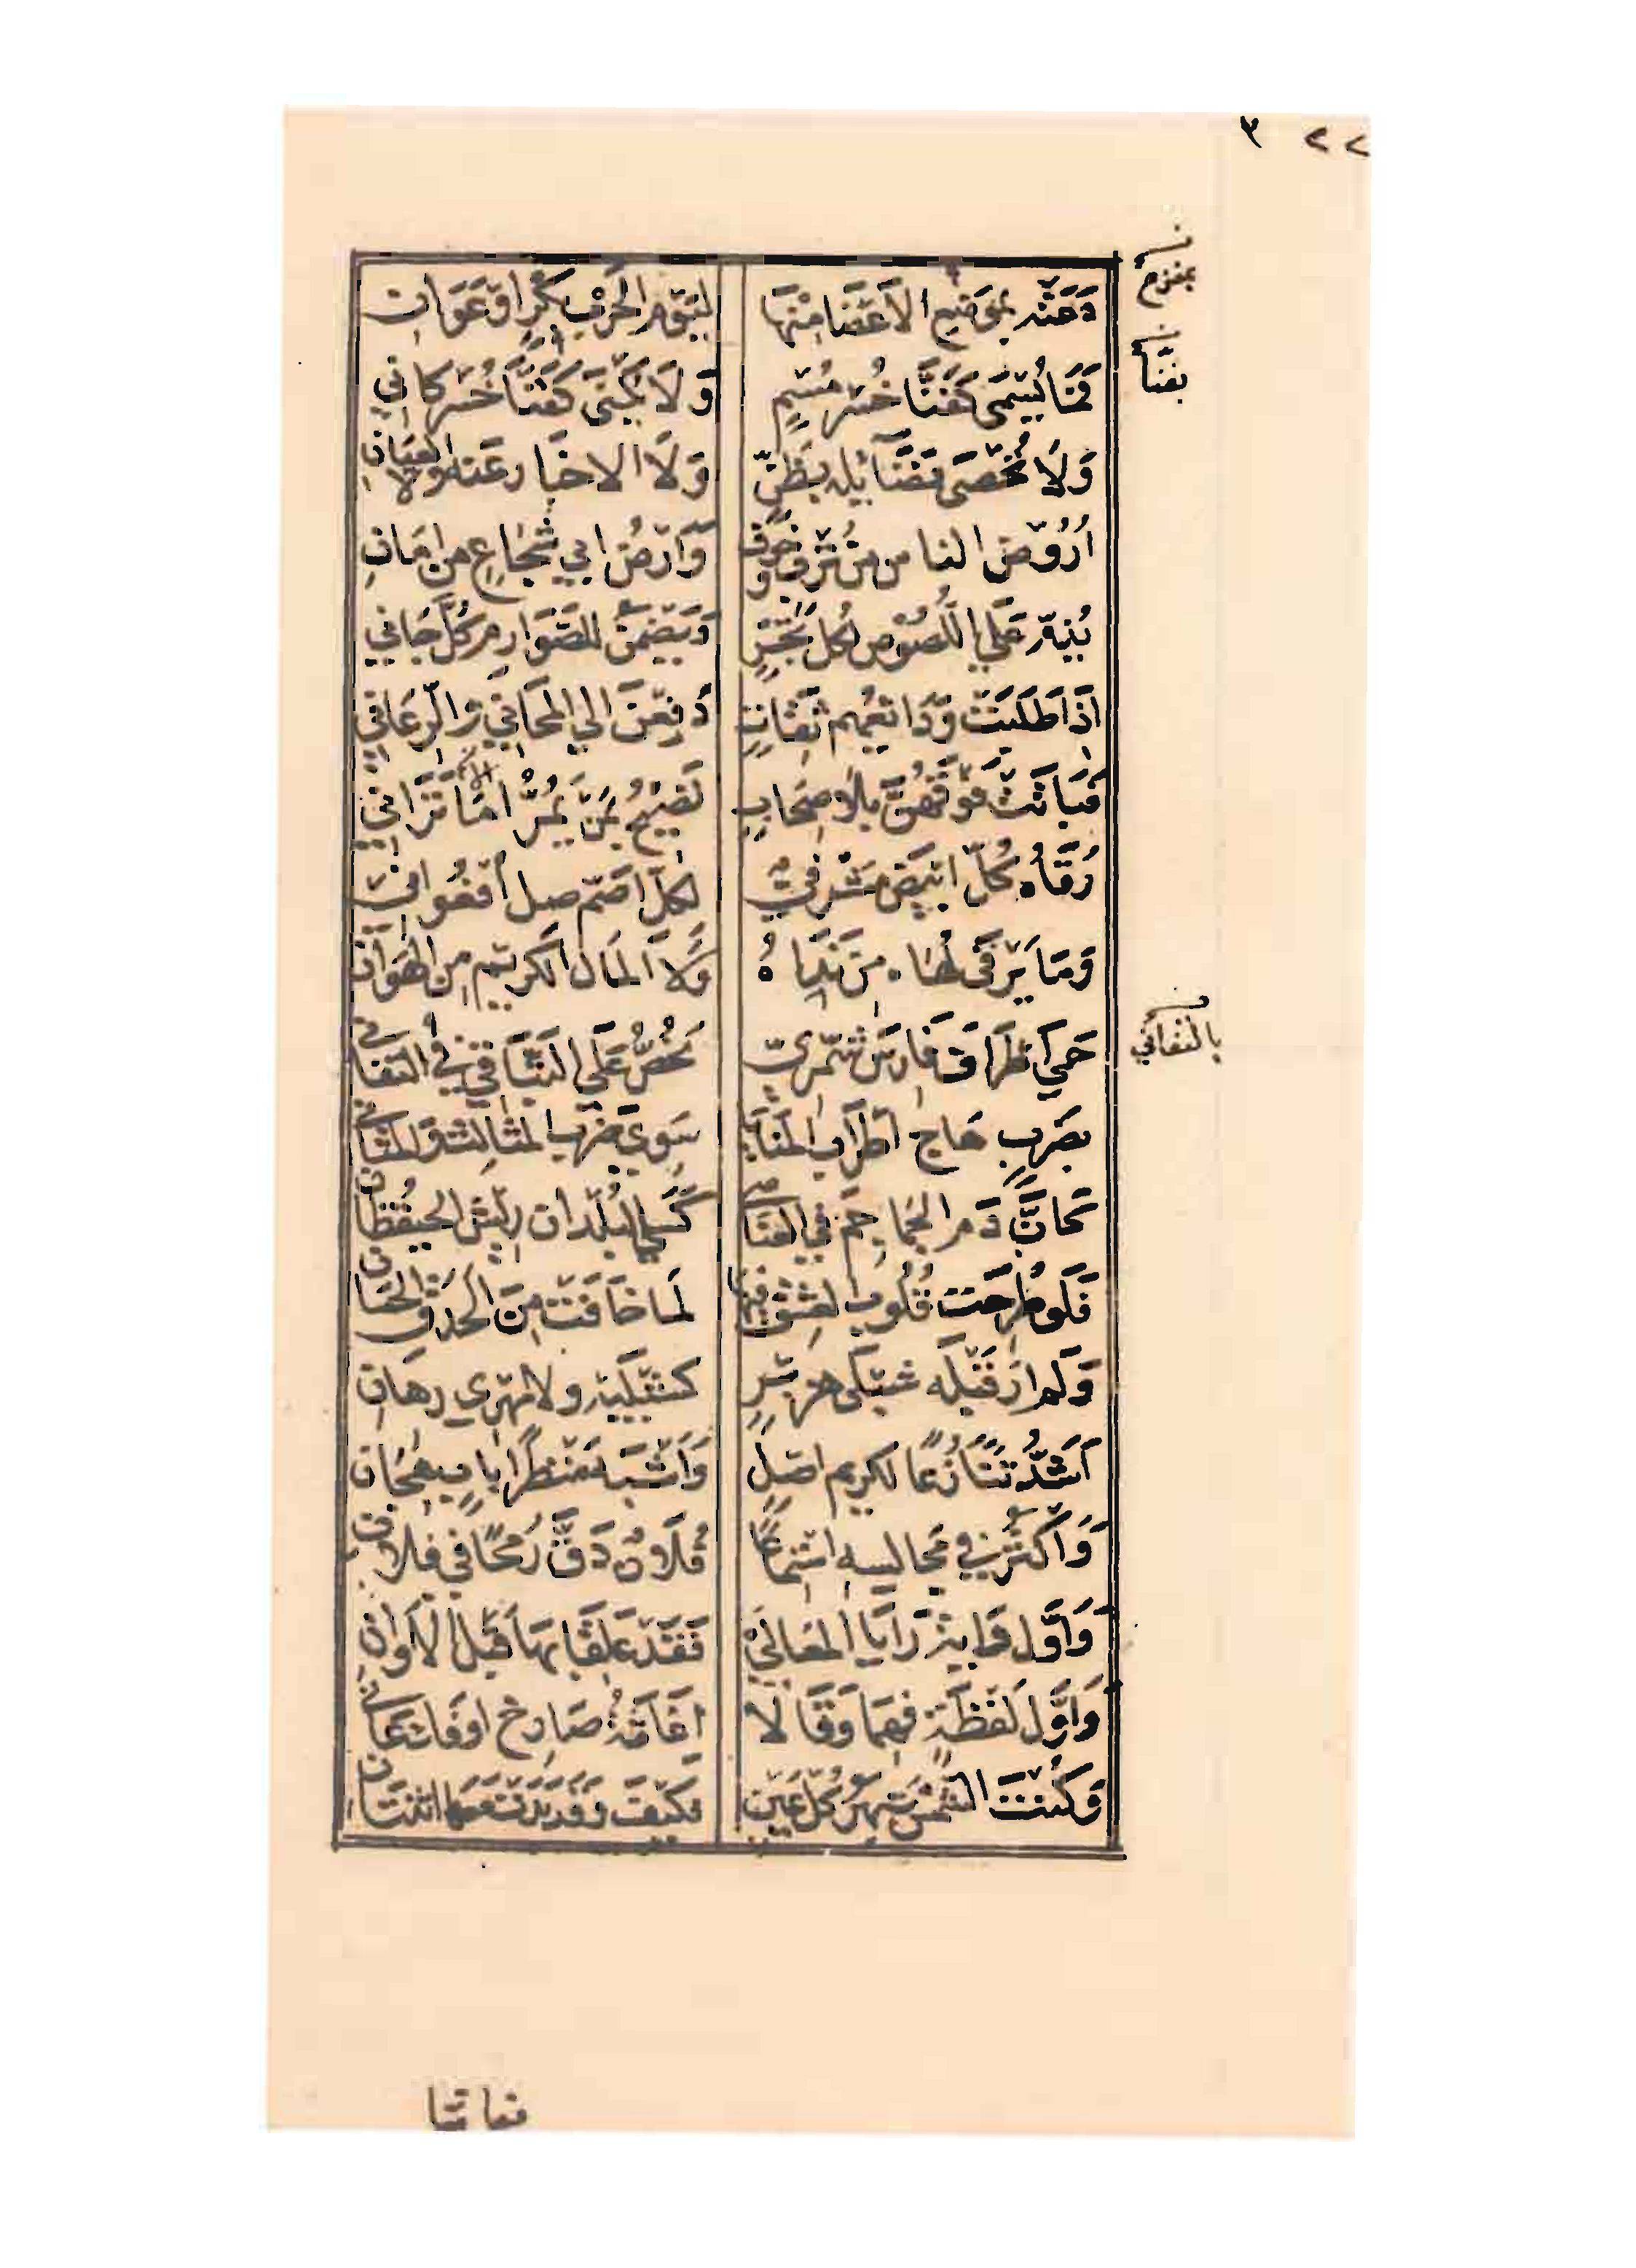 ٢٢ ٣
بمفزع
بفنا
دَعَتْه بموضع الاعضا منها ليوم الحرب بكر او عوان
فما يُسمى كفنّا خُسر مُسمٍ ولا يكنى كفنّا خُسر كاني
ولا تُحصى فضائله بظنّ ولا الاخبار عنه ولا العيان
اُرُوض الناس من تُرب وخوف وارضُ ابي شجاع من امان
يُذِمّ على اللصوص لكل تَجْرٍ ويضمن للصوارم كل جاني
اذا طلبت ودائعهم ثقات دُفعن الى المحاني والرعان
فباتت فوقهنّ بلا صحاب تصيح بمن يمرّ اما تراني
رُقاه كلّ ابيض مشرفيّ لكل اصمّ صل اُفعوان
وما يرقى لُهاه من نداه ولا المال الكريم من الهوان
حمى اطراف فارس شمّريّ يحُضّ على التباقي في التفاني
بالتفاني
بضرب هاج اطراب المنايا سوى ضرب المثالث والمثاني
كانّ دم الجماجم في العناصي كسى البلدان ريش الحيقطان
فلو طُرحت قلوب العشق فيها لما خافت من الحدق الحسان
ولم ار قبله شبلى هزبر كشبليه ولا مهري رهان
اشدّ تنازُعًا لكريم اصل واشبه منظرًا باب هجان
واكثر في مجالسه استماعًا فلانٌ دقّ رمحًا في فلان
واوّل ما رايا المعالي فقد علقا بها قبل الاوان
واوّل لفظة فهما وقالا اغاثة صارخ او فك عاني
وكنت الشمس تبهر كل عين فكيف وقد بدت معها اثنتان
فعاشا